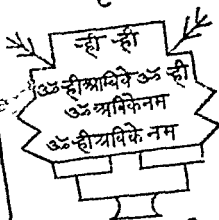 ह्री ह्री
ॐ ह्रीअम्बिके ॐ ह्री
ॐ अबिकेनम
ॐ ह्रीअबिके नम